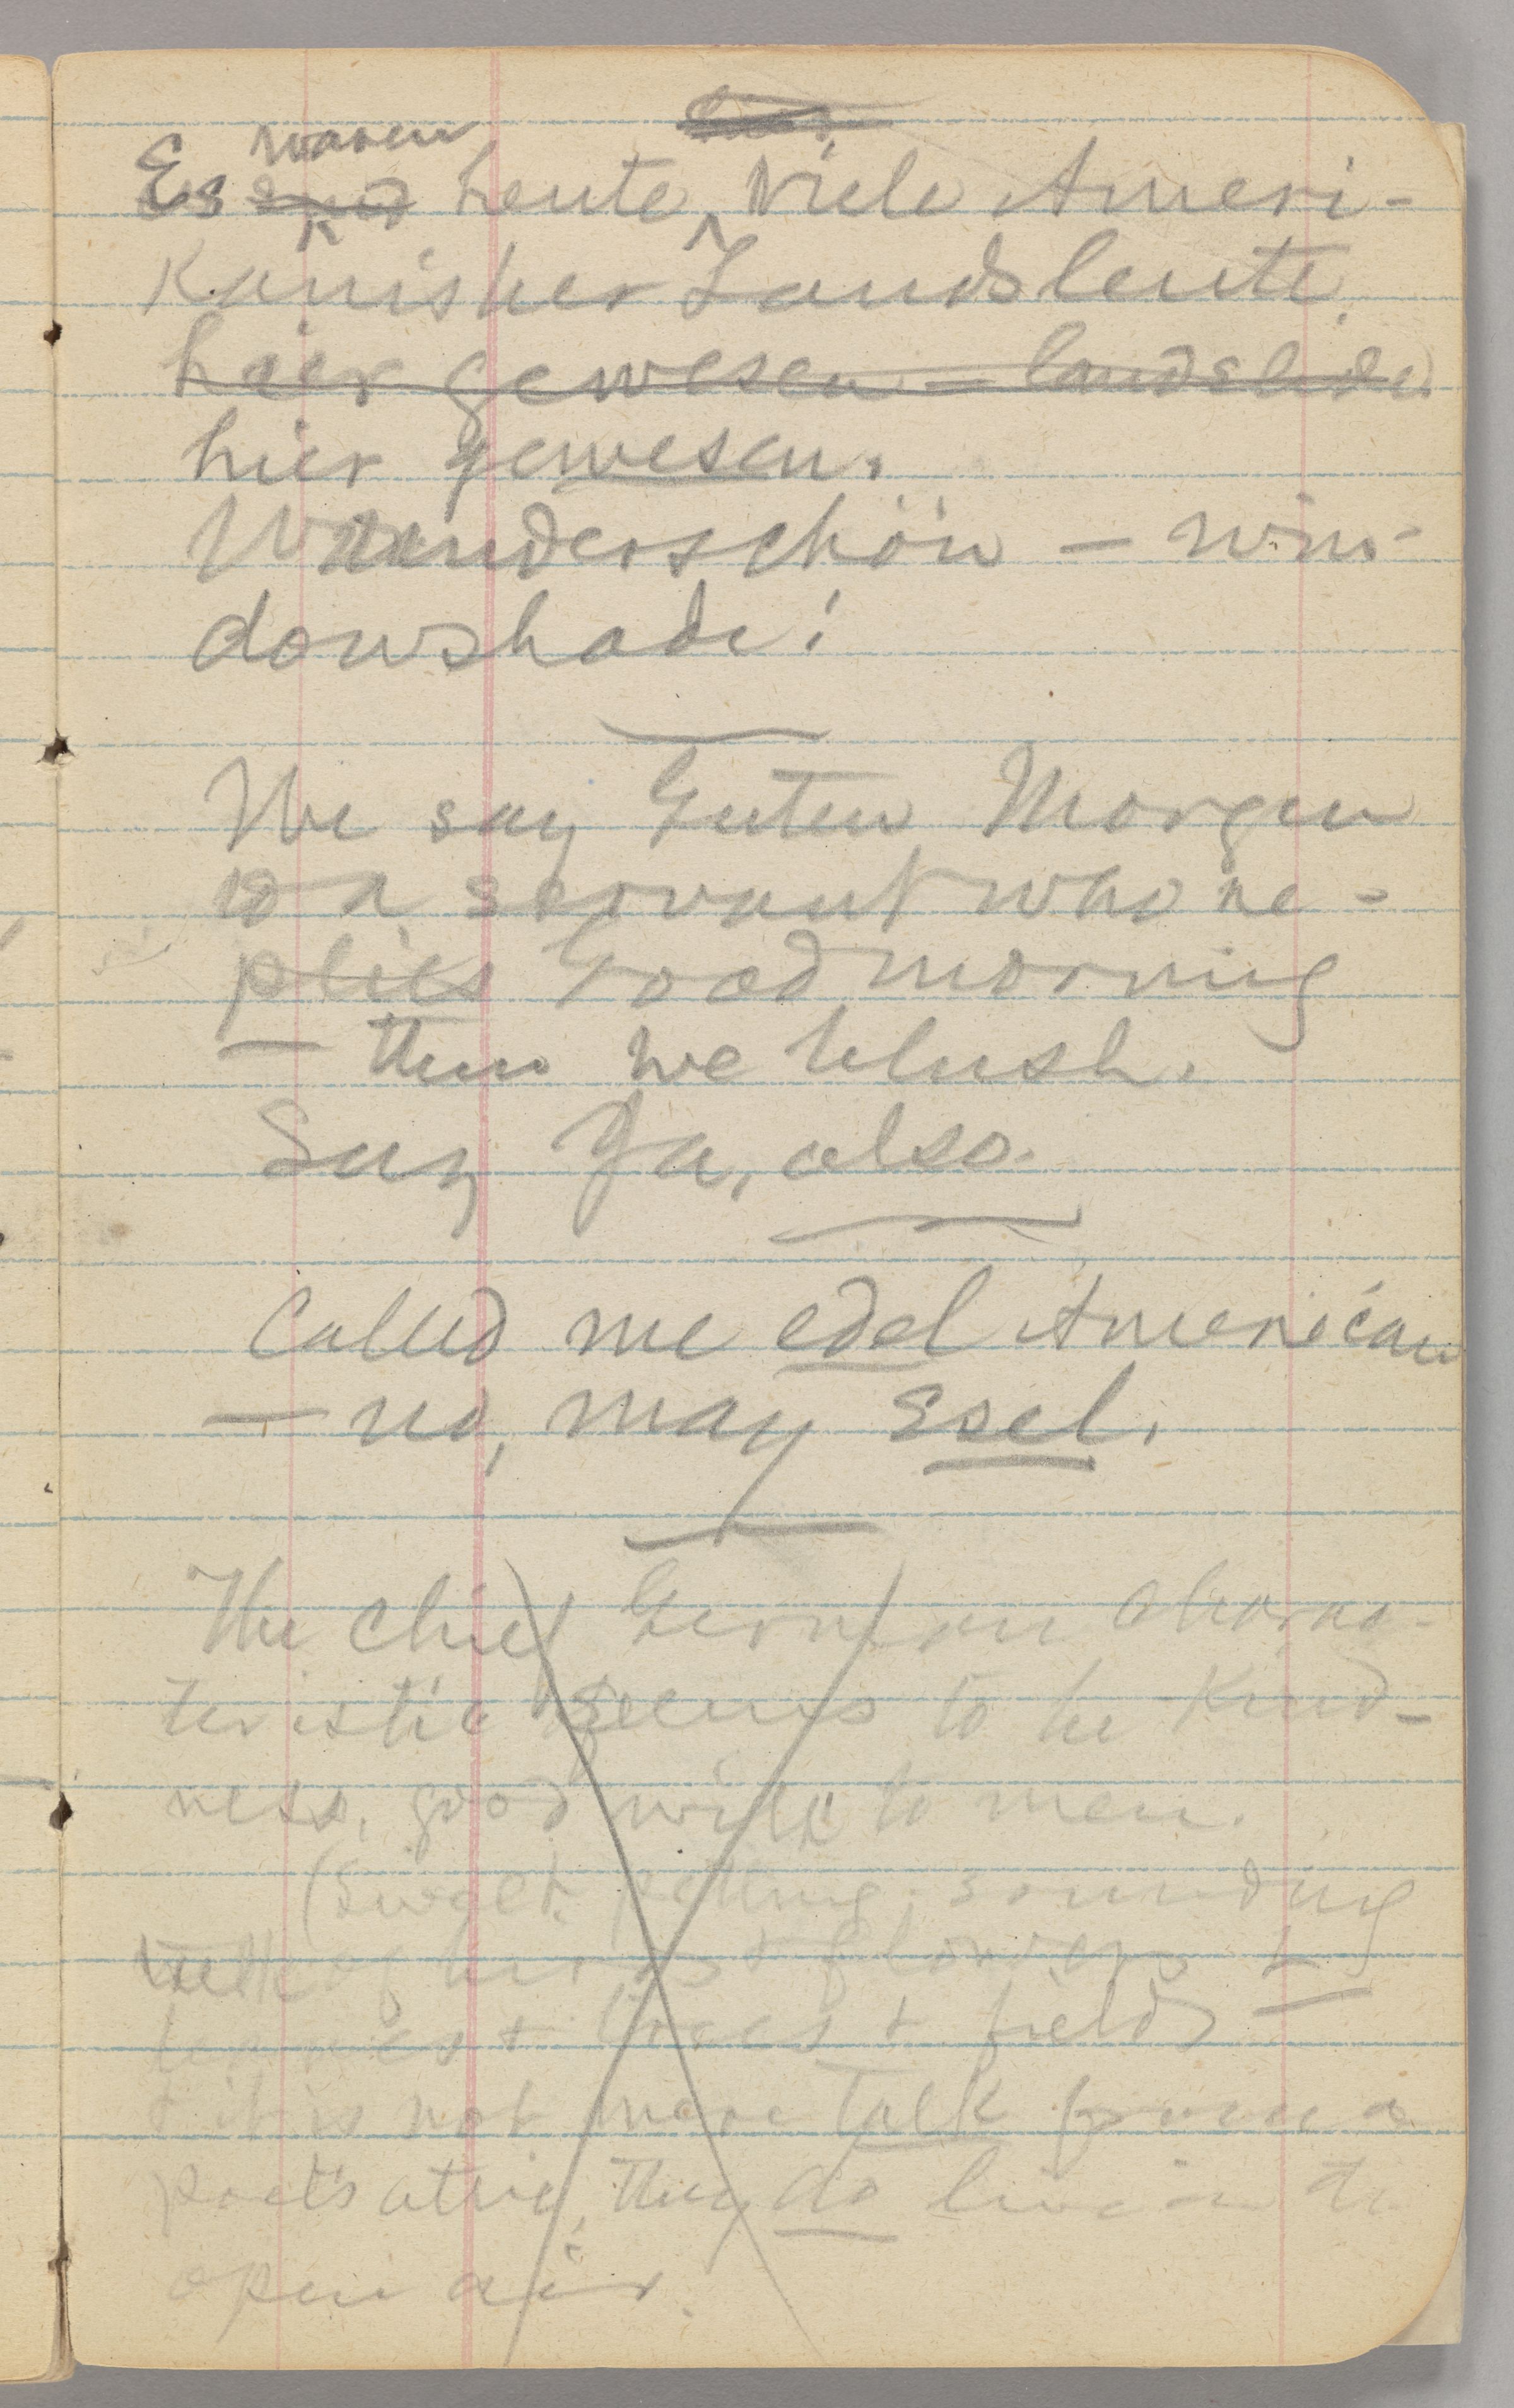 waren
Es sind heute viele Ameri-
kanisher Landsleute
hier gewesen – landslide
hier gewesen.
Wunderschön – win-
dowshade!
We say Guten Morgen
to a servant who re-
plies Good morning
— then we blush.
Say Ja, also.
Called me edel American
— no, may Esel.
The chief German charac-
teristic seems to be kind-
ness, good will to men.
(Sweet, sounding
talk of birds & flowers
& trees & fields —
& it is not mere talk from a
poet's attic, they do live in the
open air.